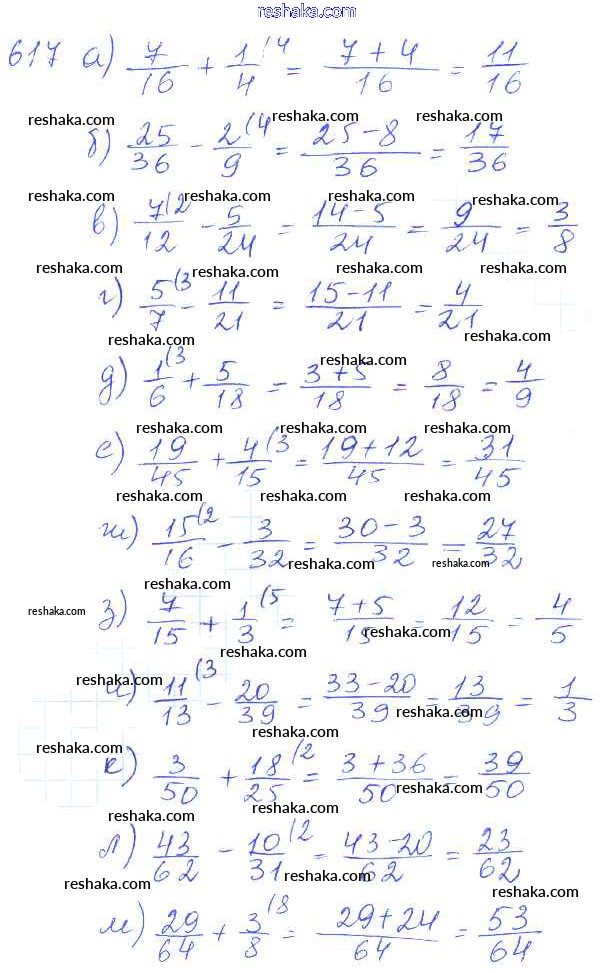 reshaka.com
617 а) 7/16 + 1/4 (4 = (7+4)/16 = 11/16
reshaka.com reshaka.com reshaka.com
б) 25/36 - 2/9 (4 = (25-8)/36 = 17/36
reshaka.com reshaka.com reshaka.com
в) 7/12 (2 - 5/24 = (14-5)/24 = 9/24 = 3/8
reshaka.com reshaka.com reshaka.com
г) 5/7 (3 - 11/21 = (15-11)/21 = 4/21
reshaka.com reshaka.com reshaka.com
д) 1/6 (3 + 5/18 = (3+5)/18 = 8/18 = 4/9
reshaka.com reshaka.com
е) 19/45 + 4/15 (3 = (19+12)/45 = 31/45
reshaka.com reshaka.com reshaka.com
ж) 15/16 (2 - 3/32 = (30-3)/32 = 27/32
reshaka.com reshaka.com reshaka.com
reshaka.com з) 7/15 + 1/3 (5 = (7+5)/15 = 12/15 = 4/5
reshaka.com reshaka.com reshaka.com
reshaka.com
и) 11/13 (3 - 20/39 = (33-20)/39 = 13/39 = 1/3
reshaka.com reshaka.com reshaka.com
к) 3/50 + 18/25 (2 = (3+36)/50 = 39/50
reshaka.com reshaka.com reshaka.com
л) 43/62 - 10/31 (2 = (43-20)/62 = 23/62
reshaka.com reshaka.com reshaka.com
м) 29/64 + 3/8 (8 = (29+24)/64 = 53/64
reshaka.com reshaka.com reshaka.com